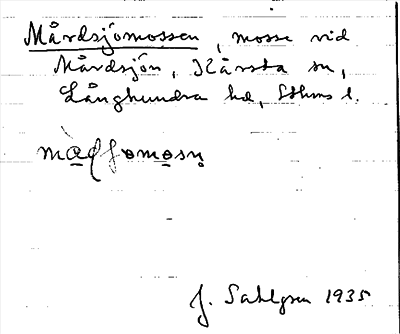 Mårdsjömossen, mosse vid
Mårdsjön, Kårsta sn,
Långhundra hd, Sthms l.
J. Sahlgren 1935